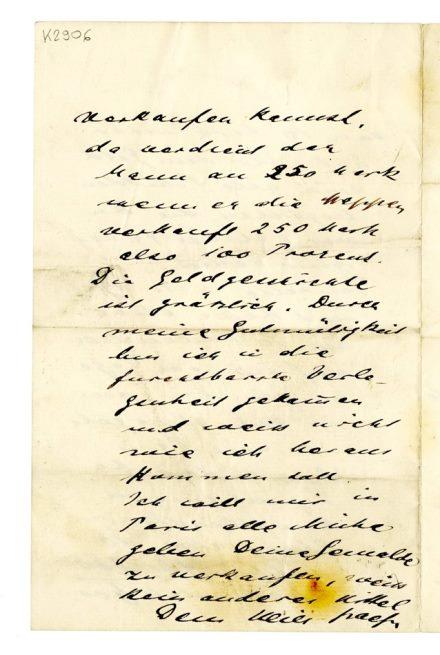 K2906
verkaufen kannst,
da verdient der
Mann an 250 Mark
wenn er die Mappen
verkauft 250 Mark
also 100 Prozent.
Die Geldgeschichte
ist grässlich. Durch
meine Gutmütigkeit
bin ich in die
furchtbarste Verle-
genheit gekommen
und weiss nicht
wie ich heraus
kommen soll.
Ich will mir in
Paris alle Mühe
geben Deine Gemälde
zu verkaufen, weiss
kein anderes Mittel
Dein